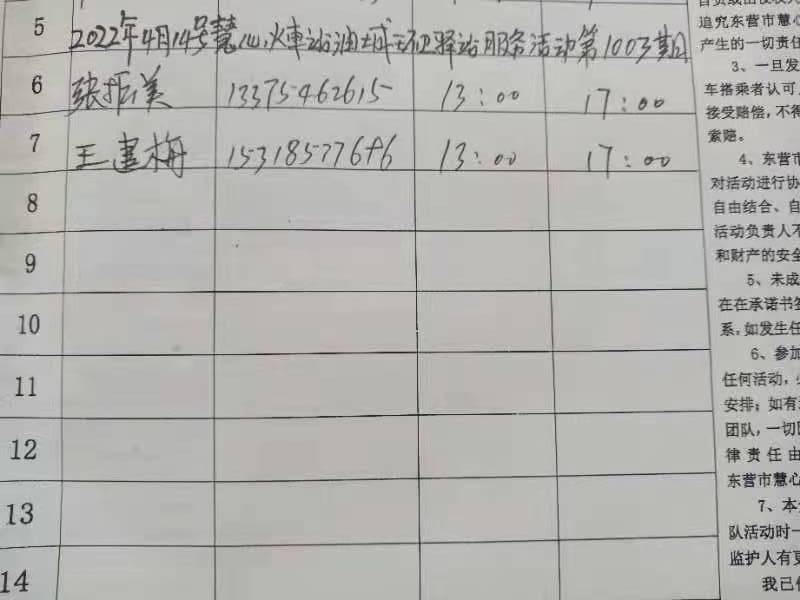 5
2022年4月14号慧心火車站油城环卫驿站服务活动第1003期
6 张振美 13375462615 13:00 17:00
7 王建梅 15318577686 13:00 17:00
8
9
10
11
12
13
14
追究东营市慧心
产生的一切责任
3、一旦发
车搭乘者认可
接受赔偿,不得
索赔。
4、东营市
对活动进行协
自由结合、自
活动负责人不
和财产的安全
5、未成
在在承诺书签
系,如发生任
6、参加
任何活动,
安排;如有
团队,一切
律责任由
东营市慧心
7、本
队活动时一
监护人有更
我已